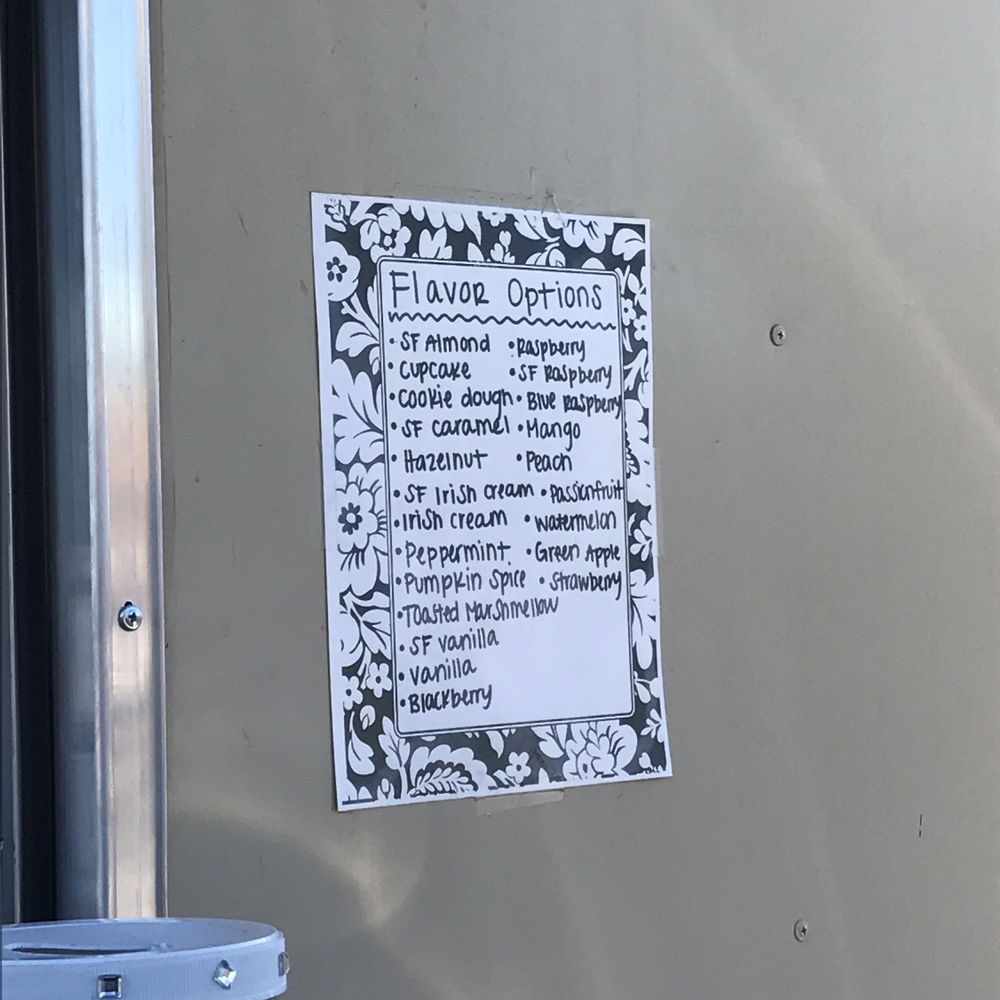 Flavor Options
• SF Almond
• Cupcake
• Cookie dough
• SF caramel
• Hazelnut
• SF Irish cream
• Irish cream
• Peppermint
• Pumpkin Spice
• Toasted Marshmellow
• SF vanilla
• vanilla
• Blackberry
• Raspberry
• SF Raspberry
• Blue Raspberry
• Mango
• Peach
• Passionfruit
• Watermelon
• Green Apple
• Strawberry